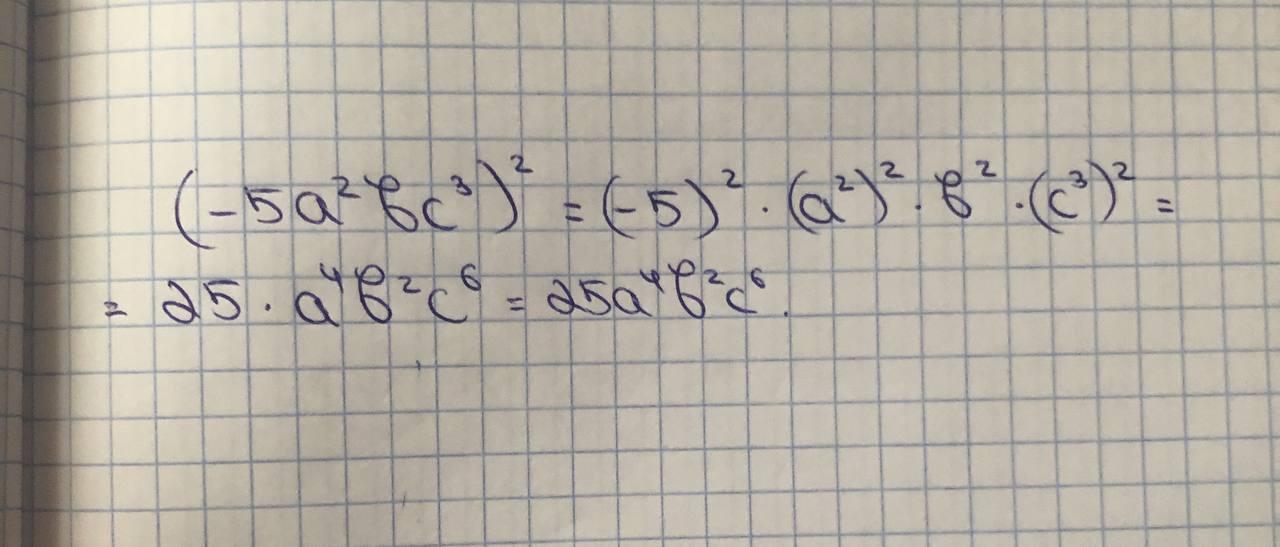 (-5a²bc³)² = (-5)² · (a²)² · b² · (c³)² =
= 25 · a⁴b²c⁶ = 25a⁴b²c⁶.